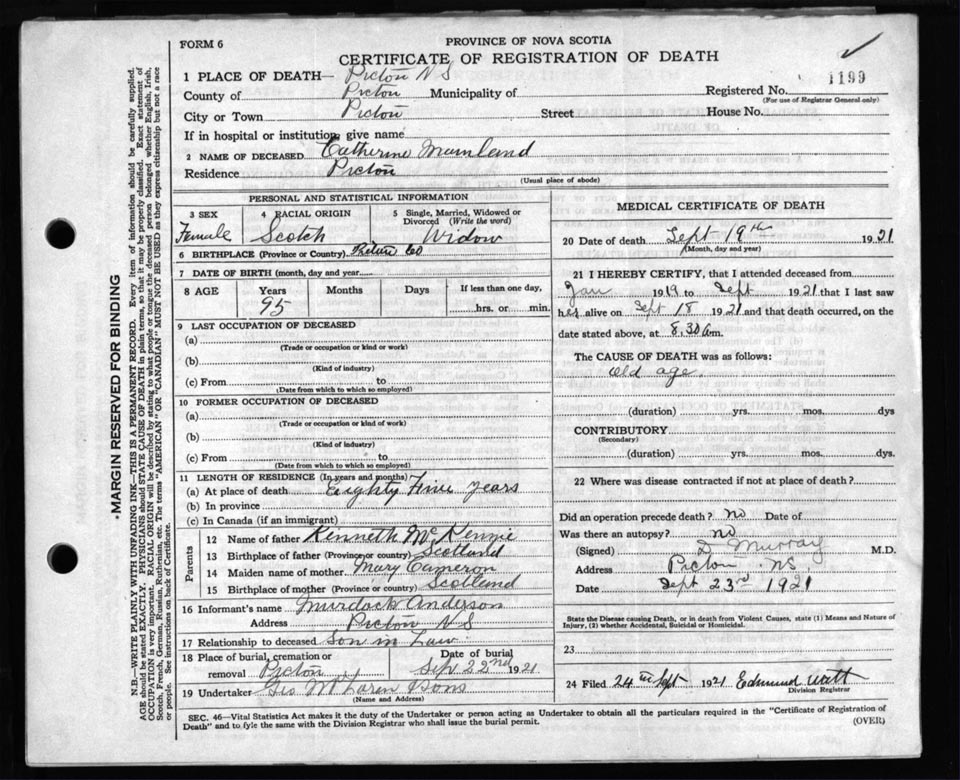 FORM 6
PROVINCE OF NOVA SCOTIA
CERTIFICATE OF REGISTRATION OF DEATH
1 PLACE OF DEATH— Pictou N S
1199
County of Pictou Municipality of Registered No.
(For use of Registrar General only)
City or Town Pictou Street House No.
If in hospital or institution, give name
2 NAME OF DECEASED Catherine Mainland
Residence Pictou
(Usual place of abode)
PERSONAL AND STATISTICAL INFORMATION
3 SEX Female
4 RACIAL ORIGIN Scotch
5 Single, Married, Widowed or Divorced (Write the word) Widow
6 BIRTHPLACE (Province or Country) Pictou Co
7 DATE OF BIRTH (month, day and year)
8 AGE Years 95 Months Days If less than one day, hrs. or min.
9 LAST OCCUPATION OF DECEASED
(a)
(Trade or occupation or kind or work)
(b)
(Kind of industry)
(c) From to
(Date from which to which so employed)
10 FORMER OCCUPATION OF DECEASED
(a)
(Trade or occupation or kind of work)
(b)
(Kind of industry)
(c) From to
(Date from which to which so employed)
11 LENGTH OF RESIDENCE (In years and months)
(a) At place of death Eighty Five years
(b) In province
(c) In Canada (if an immigrant)
Parents
12 Name of father Kenneth McKenzie
13 Birthplace of father (Province or country) Scotland
14 Maiden name of mother Mary Cameron
15 Birthplace of mother (Province or country) Scotland
16 Informant's name Murdock Anderson
Address Pictou N S
17 Relationship to deceased Son in Law
18 Place of burial, cremation or removal Pictou Date of burial Sep 22nd 1921
19 Undertaker Geo McLaren & Sons
(Name and Address)
MEDICAL CERTIFICATE OF DEATH
20 Date of death Sept 19th 1921
(Month, day and year)
21 I HEREBY CERTIFY, that I attended deceased from
Jan 1919 to Sept 1921 that I last saw
her alive on Sept 18 1921 and that death occurred, on the
date stated above, at 8.30 am.
The CAUSE OF DEATH was as follows:
old age
(duration) yrs. mos. dys
CONTRIBUTORY
(Secondary)
(duration) yrs. mos. dys.
22 Where was disease contracted if not at place of death?
Did an operation precede death? no Date of
Was there an autopsy? no
(Signed) D Murray M.D.
Address Pictou NS
Date Sept 23rd 1921
State the Disease causing Death, or in death from Violent Causes, state (1) Means and Nature of
Injury, (2) whether Accidental, Suicidal or Homicidal.
23
24 Filed 24th Sept 1921 Edmund Watt
Division Registrar
SEC. 46—Vital Statistics Act makes it the duty of the Undertaker or person acting as Undertaker to obtain all the particulars required in the "Certificate of Registration of
Death" and to file the same with the Division Registrar who shall issue the burial permit.
(OVER)
MARGIN RESERVED FOR BINDING
N.B.—WRITE PLAINLY WITH UNFADING INK—THIS IS A PERMANENT RECORD. Every item of information should be carefully supplied.
AGE should be stated EXACTLY. PHYSICIANS should STATE CAUSE OF DEATH in plain terms, so that it may be properly classified. Exact statement of
OCCUPATION is very important. RACIAL ORIGIN will be described by stating to what people or tongue the deceased person belonged whether English, Irish,
Scotch, French, German, Russian, Ruthenian, etc. The terms "AMERICAN" OR "CANADIAN" MUST NOT BE USED as they express citizenship but not a race
or people. See instructions on back of Certificate.